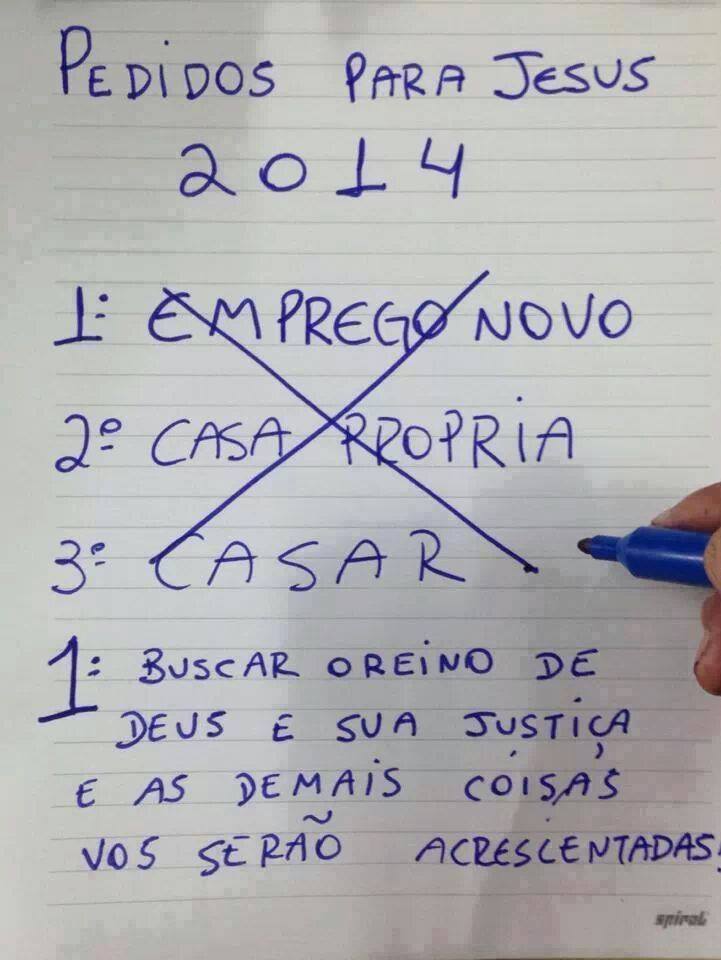 PEDIDOS PARA JESUS
2014
1º EMPREGO NOVO
2º CASA PROPRIA
3º CASAR
1º BUSCAR O REINO DE
DEUS E SUA JUSTIÇA
E AS DEMAIS COISAS
VOS SERÃO ACRESCENTADAS!
spiral